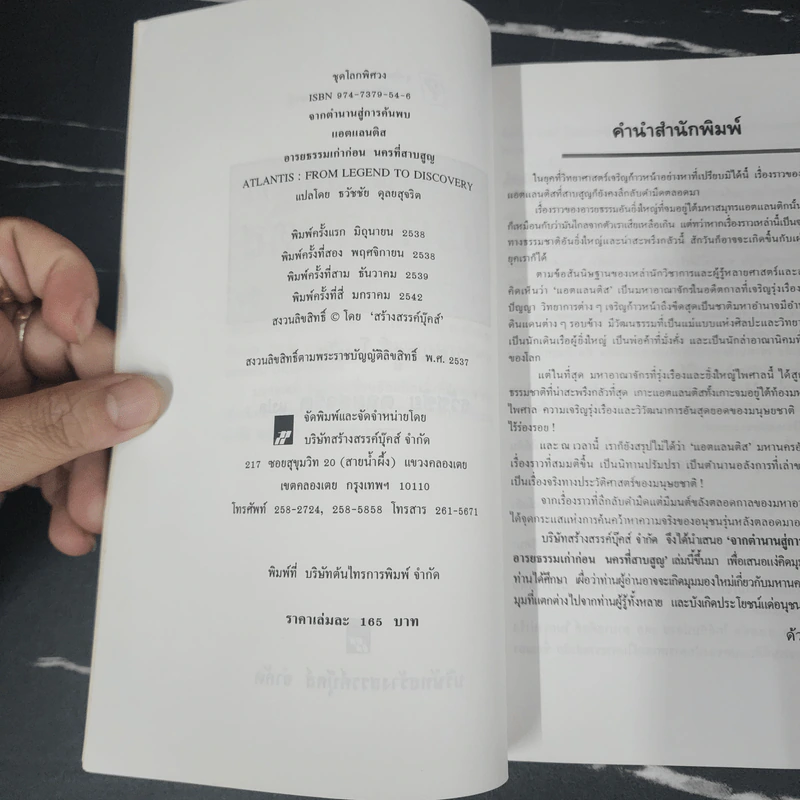 ชุดโลกพิศวง
ISBN 974-7379-54-6
จากตำนานสู่การค้นพบ
แอตแลนติส
อารยธรรมเก่าก่อน นครที่สาบสูญ
ATLANTIS : FROM LEGEND TO DISCOVERY
แปลโดย ธวัชชัย ดุลยสุจริต
พิมพ์ครั้งแรก มิถุนายน 2538
พิมพ์ครั้งที่สอง พฤศจิกายน 2538
พิมพ์ครั้งที่สาม ธันวาคม 2539
พิมพ์ครั้งที่สี่ มกราคม 2542
สงวนลิขสิทธิ์ © โดย 'สร้างสรรค์บุ๊คส์'
สงวนลิขสิทธิ์ตามพระราชบัญญัติลิขสิทธิ์ พ.ศ. 2537
จัดพิมพ์และจัดจำหน่ายโดย
บริษัทสร้างสรรค์บุ๊คส์ จำกัด
217 ซอยสุขุมวิท 20 (สายน้ำผึ้ง) แขวงคลองเตย
เขตคลองเตย กรุงเทพฯ 10110
โทรศัพท์ 258-2724, 258-5858 โทรสาร 261-5671
พิมพ์ที่ บริษัทต้นไทรการพิมพ์ จำกัด
ราคาเล่มละ 165 บาท
คำนำสำนักพิมพ์
ในยุคที่วิทยาศาสตร์เจริญก้าวหน้าอย่างหาที่เปรียบมิได้นี้ เรื่องราวของ
แอตแลนติสที่สาบสูญก็ยังคงลึกลับดำมืดตลอดมา
เรื่องราวของอารยธรรมอันยิ่งใหญ่ที่จมอยู่ใต้มหาสมุทรแอตแลนติกนั้น
ก็เหมือนกับว่ามันไกลจากตัวเราเสียเหลือเกิน แต่ทว่าหากเรื่องราวเหล่านี้เป็น
ทางธรรมชาติอันยิ่งใหญ่และน่าสะพรึงกลัวนี้ สักวันก็อาจจะเกิดขึ้นกับ
ยุคเราก็ได้
ตามข้อสันนิษฐานของเหล่านักวิชาการและผู้รู้หลายศาสตร์และ
คิดเห็นว่า 'แอตแลนติส' เป็นมหาอาณาจักรในอดีตกาลที่เจริญรุ่งเรือง
ปัญญา วิทยาการต่าง ๆ เจริญก้าวหน้าถึงขีดสุดเป็นชาติมหาอำนาจมี
ดินแดนต่าง ๆ รอบข้าง มีวัฒนธรรมที่เป็นแม่แบบแห่งศิลปะและวิทยา
เป็นนักเดินเรือผู้ยิ่งใหญ่ เป็นพ่อค้าที่มั่งคั่ง และเป็นนักล่าอาณานิคม
ของโลก
แต่ในที่สุด มหาอาณาจักรที่รุ่งเรืองและยิ่งใหญ่ไพศาลนี้ ได้
ธรรมชาติที่น่าสะพรึงกลัวที่สุด เกาะแอตแลนติสทั้งเกาะจมอยู่ใต้ท้อง
ไพศาล ความเจริญรุ่งเรืองและวิวัฒนาการอันสุดยอดของมนุษยชาติ
ไร้ร่องรอย !
และ ณ เวลานี้ เราก็ยังสรุปไม่ได้ว่า 'แอตแลนติส' มหานคร
เรื่องราวที่สมมติขึ้น เป็นนิทานปรัมปรา เป็นตำนานอลังการที่เล่า
เป็นเรื่องจริงทางประวัติศาสตร์ของมนุษยชาติ !
จากเรื่องราวที่ลึกลับดำมืดแต่มีมนต์ขลังตลอดกาลของมหา
ได้จุดกระแสแห่งการค้นคว้าหาความจริงของอนุชนรุ่นหลังตลอดมา
บริษัทสร้างสรรค์บุ๊คส์ จำกัด จึงได้นำเสนอ 'จากตำนานสู่
อารยธรรมเก่าก่อน นครที่สาบสูญ' เล่มนี้ขึ้นมา เพื่อเสนอแง่คิด
ท่านได้ศึกษา เผื่อว่าท่านผู้อ่านอาจจะเกิดมุมมองใหม่เกี่ยวกับมหานคร
มุมที่แตกต่างไปจากท่านผู้รู้ทั้งหลาย และบังเกิดประโยชน์แด่อนุชน